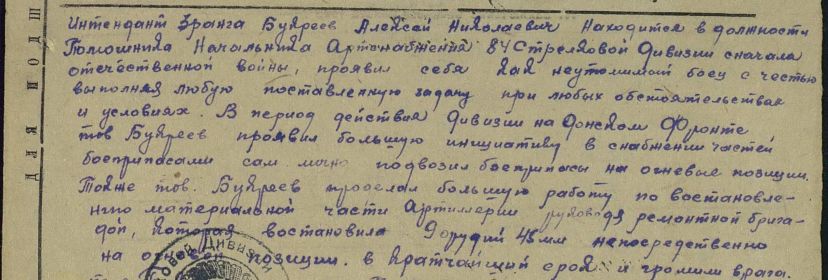 Интендант 3ранга Букреев Алексей Николаевич находится в должности
Помошника Начальника Артснабжения 84 Стрелковой дивизии сначала
отечественной войны, проявил себя как неутомимый боец с честью
выполняя любую поставленную задачу при любых обстоятельствах
и условиях. В период действия дивизии на Донском Фронте
тов Букреев проявил большую инициативу в снабжении частей
боеприпасами сам лично подвозил боеприпасы на огневые позиции.
Также тов. Букреев проделал большую работу по востановле-
нию материальной части Артиллерии руководя ремонтной брига-
дой, которая востановила 9 орудий 45мм непосредственно
на огневой позиции. в кратчайщий срок и громили врага.
ДЛЯ ПОДШ
овой Дивизии